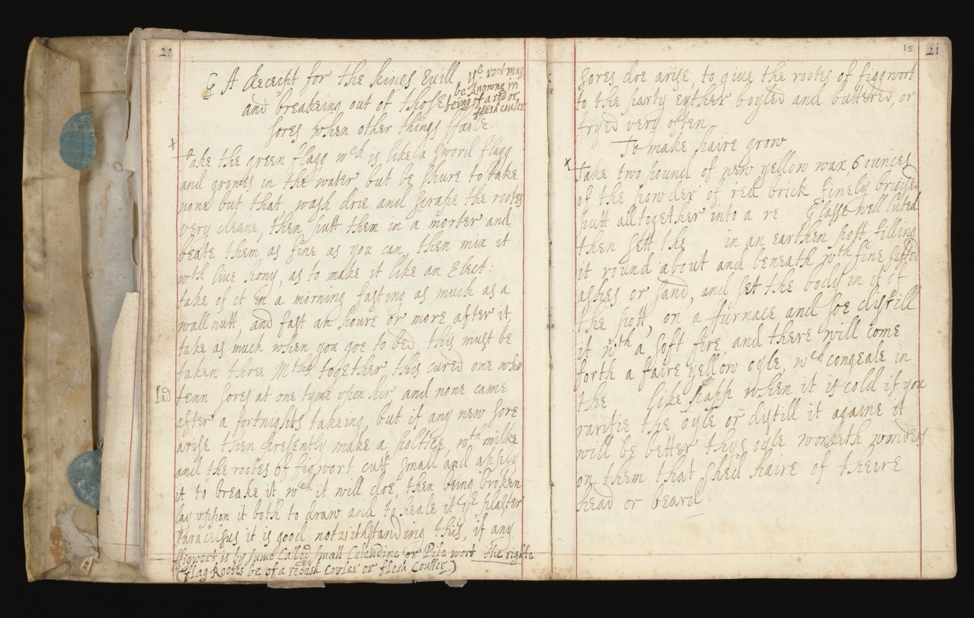 20
A Receipt for the kings Evill
and breakeing out of those
sores when other things faile.
ys root may
be knowne in
being of a red or
flesh couller
x
Take the green flagg wch is like a sword flagg
and growes in the water but be shure to take
none but that, wash drie and scrape the rootes
very cleane, then putt them in a morter and
beate them as fine as you can, then mix it
wth live hony, as to make it like an Elect:
take of it in a morning fasting as much as a
wallnutt, and fast an houre or more after it
take as much when you goe to bed, this must be
taken three Mths together this cured one who
had
tenn sores at one tyme upon her, and none came
after a fortnights takeing, but if any new sore
arise then presently make a poltice, wth milke
and the rootes of figwort cutt small and apply
it to breake it, wch it will doe, then being broken
lay uppon it both to draw and to heale it ye plaster
Paracelsus it is good notwithstanding this, if any
figwort is by sume Called small Celendine or Pile wort the righte
(flag Rootes be of a redish Couler or flesh Couller)
15
21
sores doe arise, to give the rootes of figgwort
to the party eyther boyled and buttered, or
fryed very often
To make haire grow
x
Take two pound of new yellow wax 6 ounces
of the powder of red brick finely bruised
putt alltogether into a re Glasse well luted
then sett the in an earthen pott filling
it round about and beneath wth fine sifted
ashes or sand, and set the body in
the pott, on a furnace and soe distill
it wth a soft fire and there will come
forth a faire yellow oyle, wch congeale in
the like happ when it is cold if you
rarifie the oyle or distill it againe it
will be better thys oyle worketh wonders
on them that shed haire of theire
head or beard